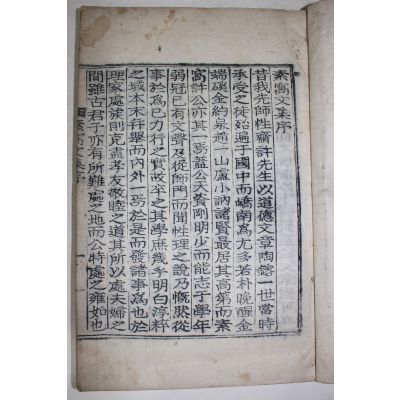 素窩文集序
昔我先師性齋許先生以道德文章陶鑄一世當時
承受之徒殆遍于國中而嶠南爲尤多若朴晩醒金
端磎金約泉通一山盧小訥諸賢最居其高第而素
窩許公亦其一焉蓋公天資剛明少而能志于學年
弱冠已有文聲及從師門而聞性理之說乃慨然從
事於爲己力行之實故卒之其學庶幾乎明白淳粹
之域本末幷擧而內外一焉於是而發諸事爲也於
理家處族則克盡孝友敬睦之道其所以處夫婦之
間雖古君子亦有所難處之地而公特處之雍如也
素窩文集序
一